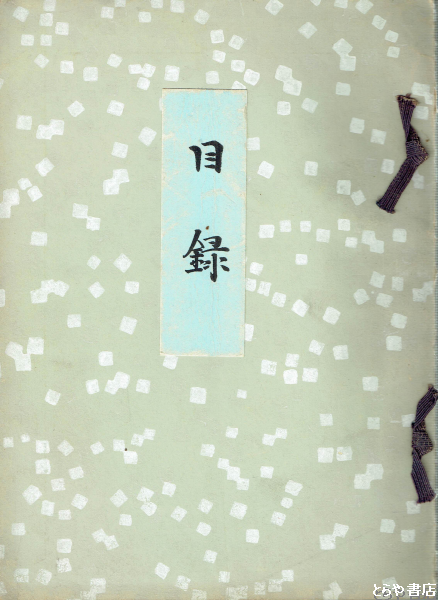 目録
とらや書店